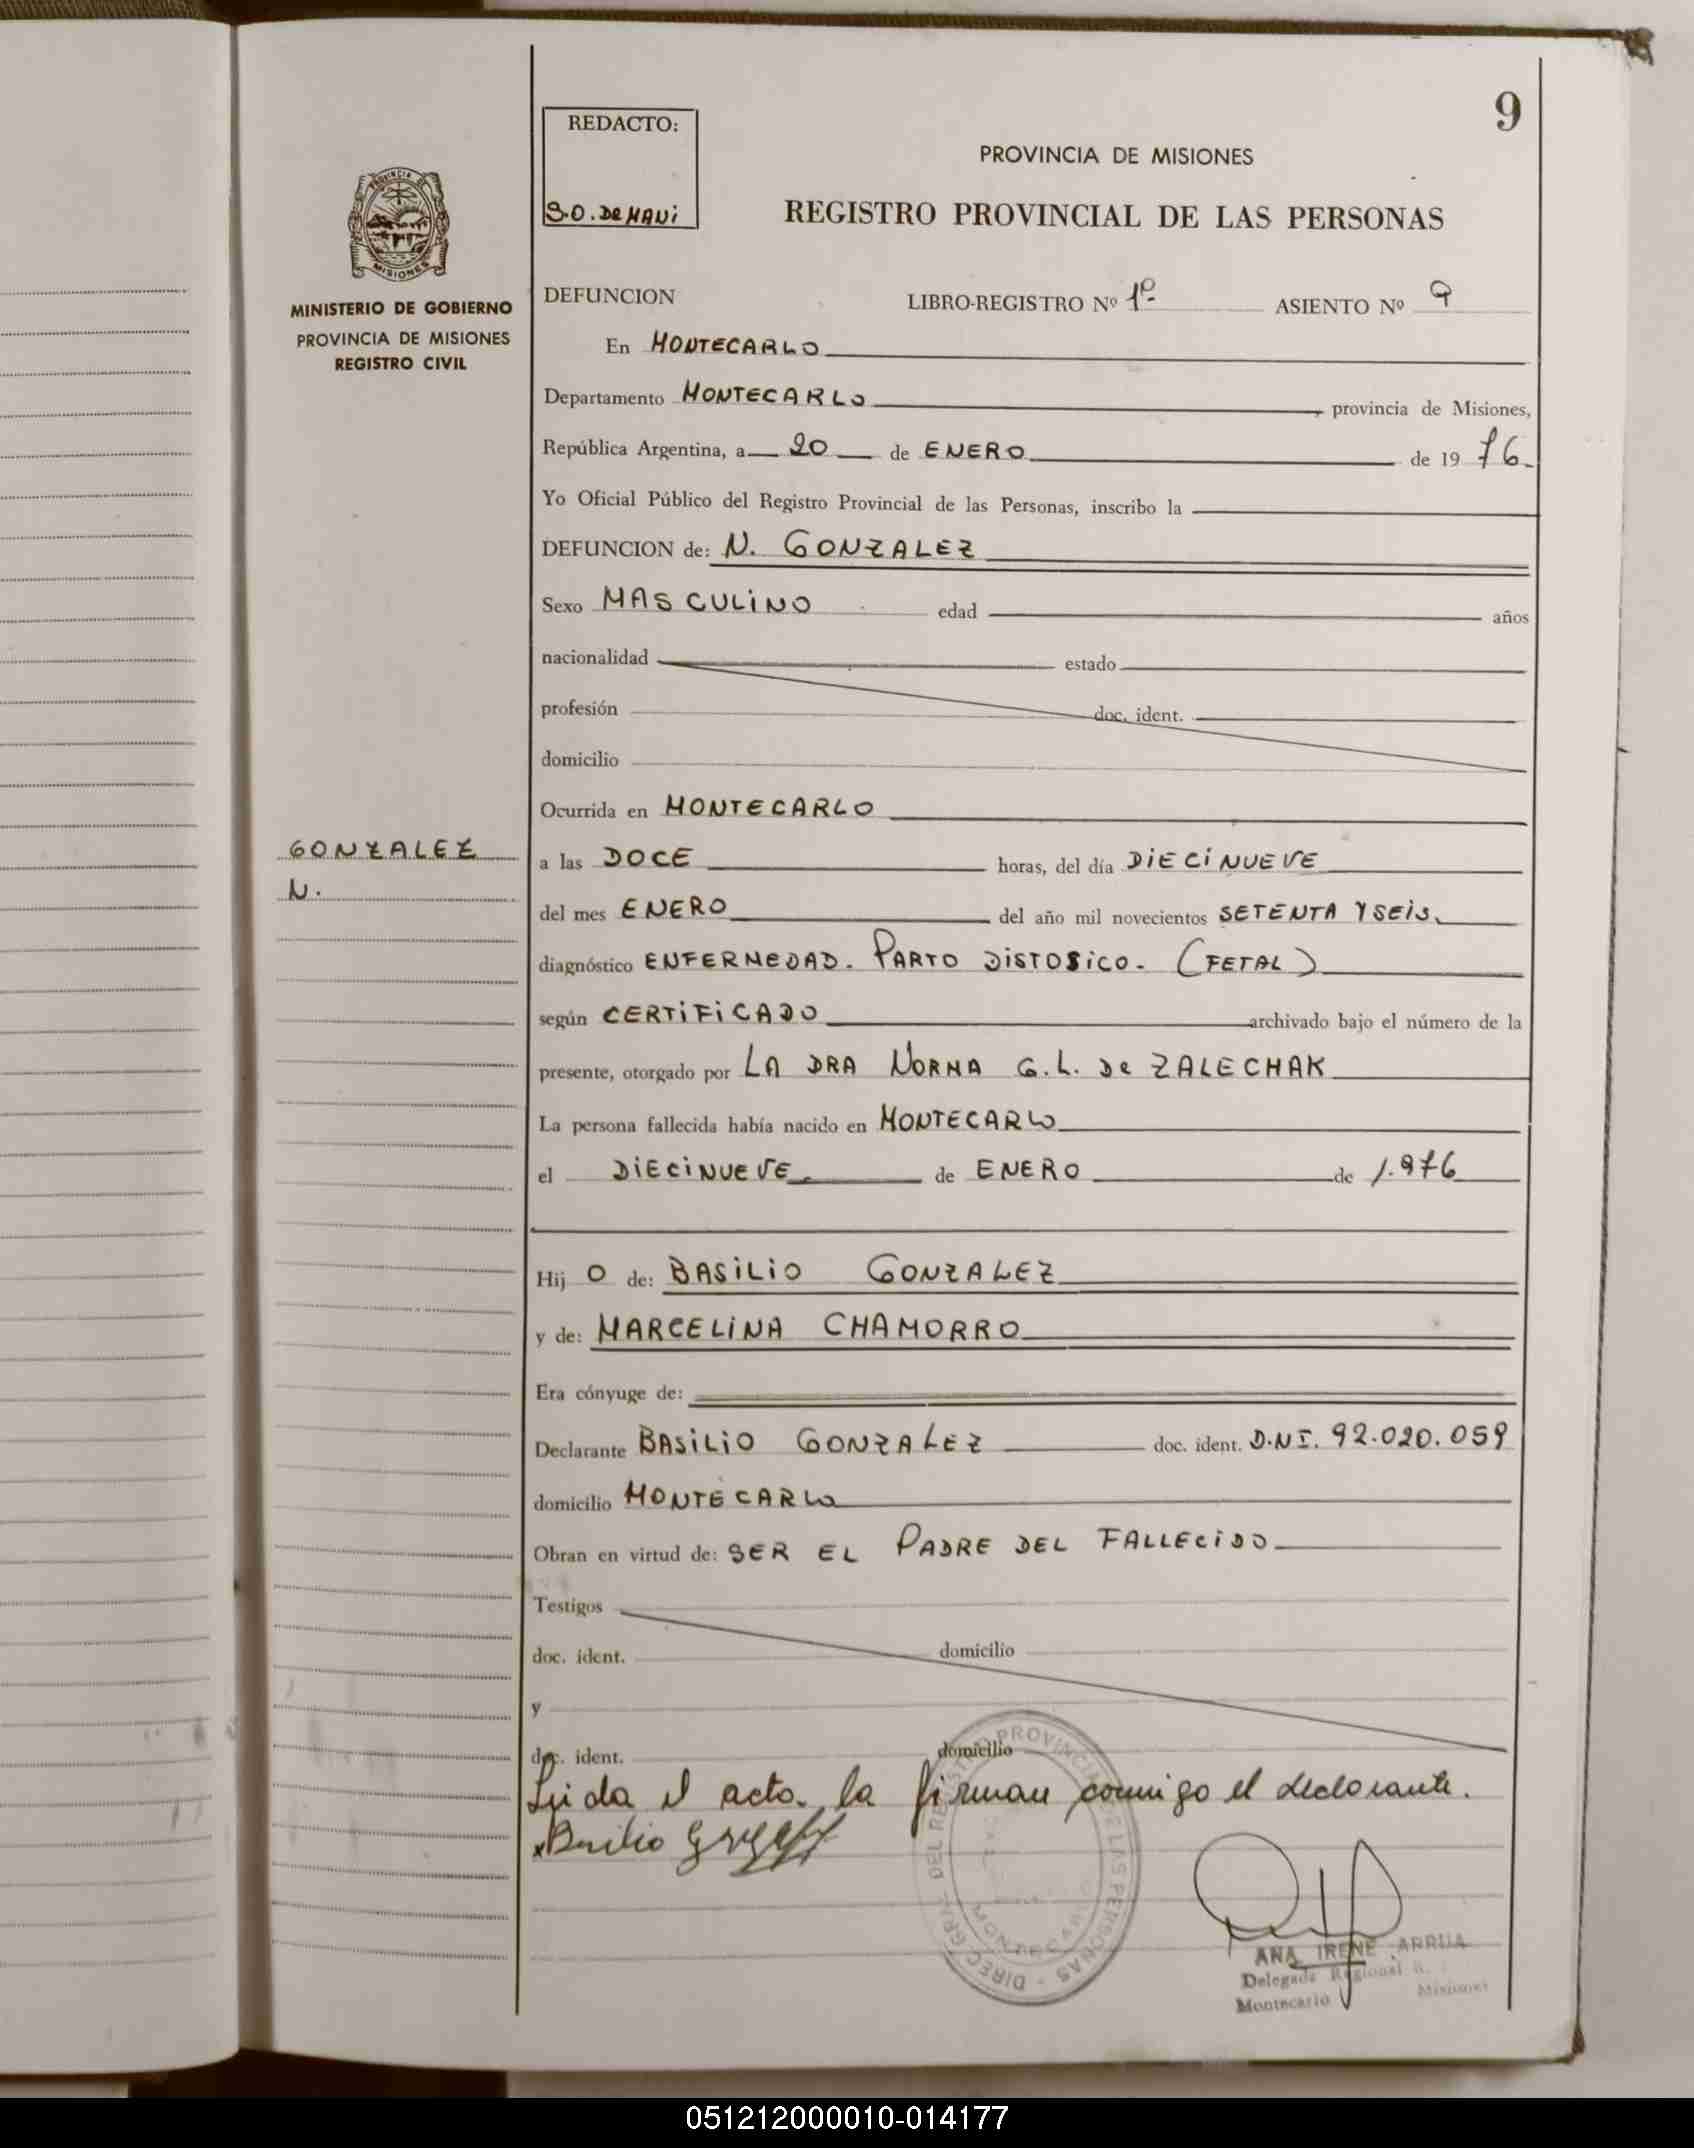 9
REDACTO:
S.O. De HAUi
PROVINCIA DE MISIONES
REGISTRO PROVINCIAL DE LAS PERSONAS
PROVINCIA DE
MISIONES
MINISTERIO DE GOBIERNO
PROVINCIA DE MISIONES
REGISTRO CIVIL
DEFUNCION LIBRO-REGISTRO Nº 1º ASIENTO Nº 9
En MONTECARLO
Departamento MONTECARLO, provincia de Misiones,
República Argentina, a 20 de ENERO de 1976.
Yo Oficial Público del Registro Provincial de las Personas, inscribo la
DEFUNCION de: N. GONZALEZ
Sexo MASCULINO edad años
nacionalidad estado
profesión doc. ident.
domicilio
Ocurrida en MONTECARLO
GONZALEZ
N.
a las DOCE horas, del día DIECINUEVE
del mes ENERO del año mil novecientos SETENTA Y SEIS.
diagnóstico ENFERMEDAD. PARTO DISTOSICO. (FETAL)
según CERTIFICADO archivado bajo el número de la
presente, otorgado por LA DRA NORMA G.L. De ZALECHAK
La persona fallecida había nacido en MONTECARLO
el DIECINUEVE de ENERO de 1.976
Hij O de: BASILIO GONZALEZ
y de: MARCELINA CHAMORRO
Era cónyuge de:
Declarante BASILIO GONZALEZ doc. ident. D.N.I. 92.020.059
domicilio MONTECARLO
Obran en virtud de: SER EL PADRE DEL FALLECIDO
Testigos
doc. ident. domicilio
y
doc. ident. domicilio
Leida el acta. la firman conmigo el declarante.
Basilio
DIREC. GRAL. DEL REGISTRO PROVINCIAL DE LAS PERSONAS
MONTECARLO
ANA IRENE ARRUA
Delegada Regional
Montecarlo Misiones
051212000010-014177